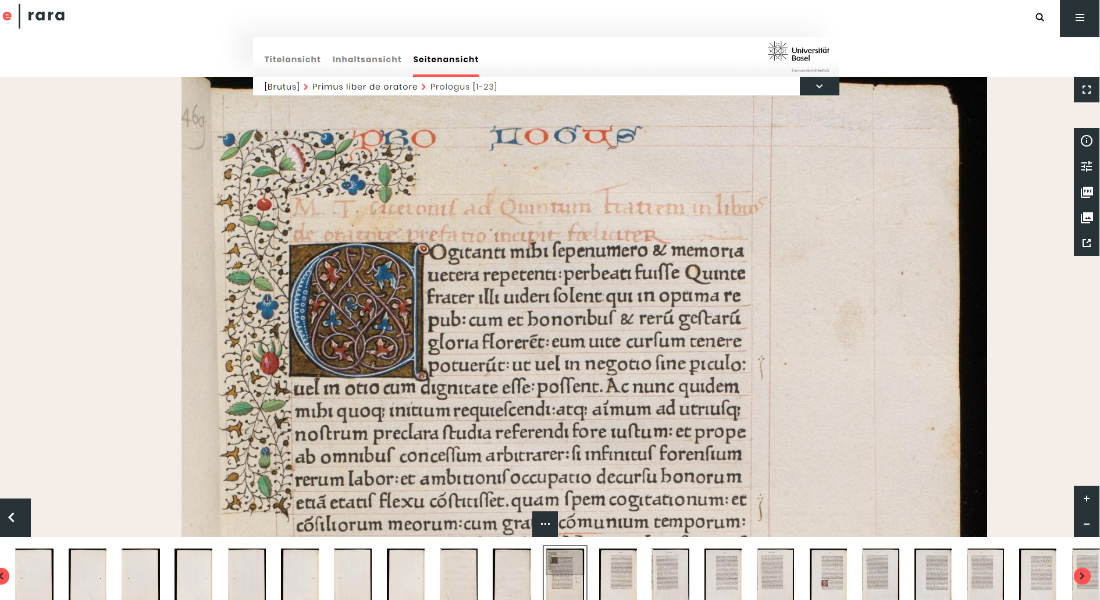 e | rara
Titelansicht Inhaltsansicht Seitenansicht
Universität
Basel
[Brutus] > Primus liber de oratore > Prologus [1-23]
469
PRO LOGUS
M. T. ciceronis ad Quintum fratrem in libros
de oratore prefatio incipit foeliciter
COgitanti mihi ſepenumero & memoria
uetera repetenti: perbeati fuiſſe Quinte
frater illi uideri ſolent qui in optima re
pub: cum et honoribuſ & rerū geſtarū
gloria florerēt: eum uite curſum tenere
potuerūt: ut uel in negotio ſine piculo:
uel in otio cum dignitate eſſe: poſſent. Ac nunc quidem
mihi quoq; initium requieſcendi: atq; aīmum ad utriuſq;
noſtrum preclara ſtudia referendi fore iuſtum: et prope
ab omnibuſ conceſſum arbitrarer: ſi infinituſ forenſium
rerum labor: et ambitioniſ occupatio decurſu honorum
etiā etatiſ flexu cōſtitiſſet. quam ſpem cogitationum: et
cōſiliorum meorum: cum gra cōmunium temporum: